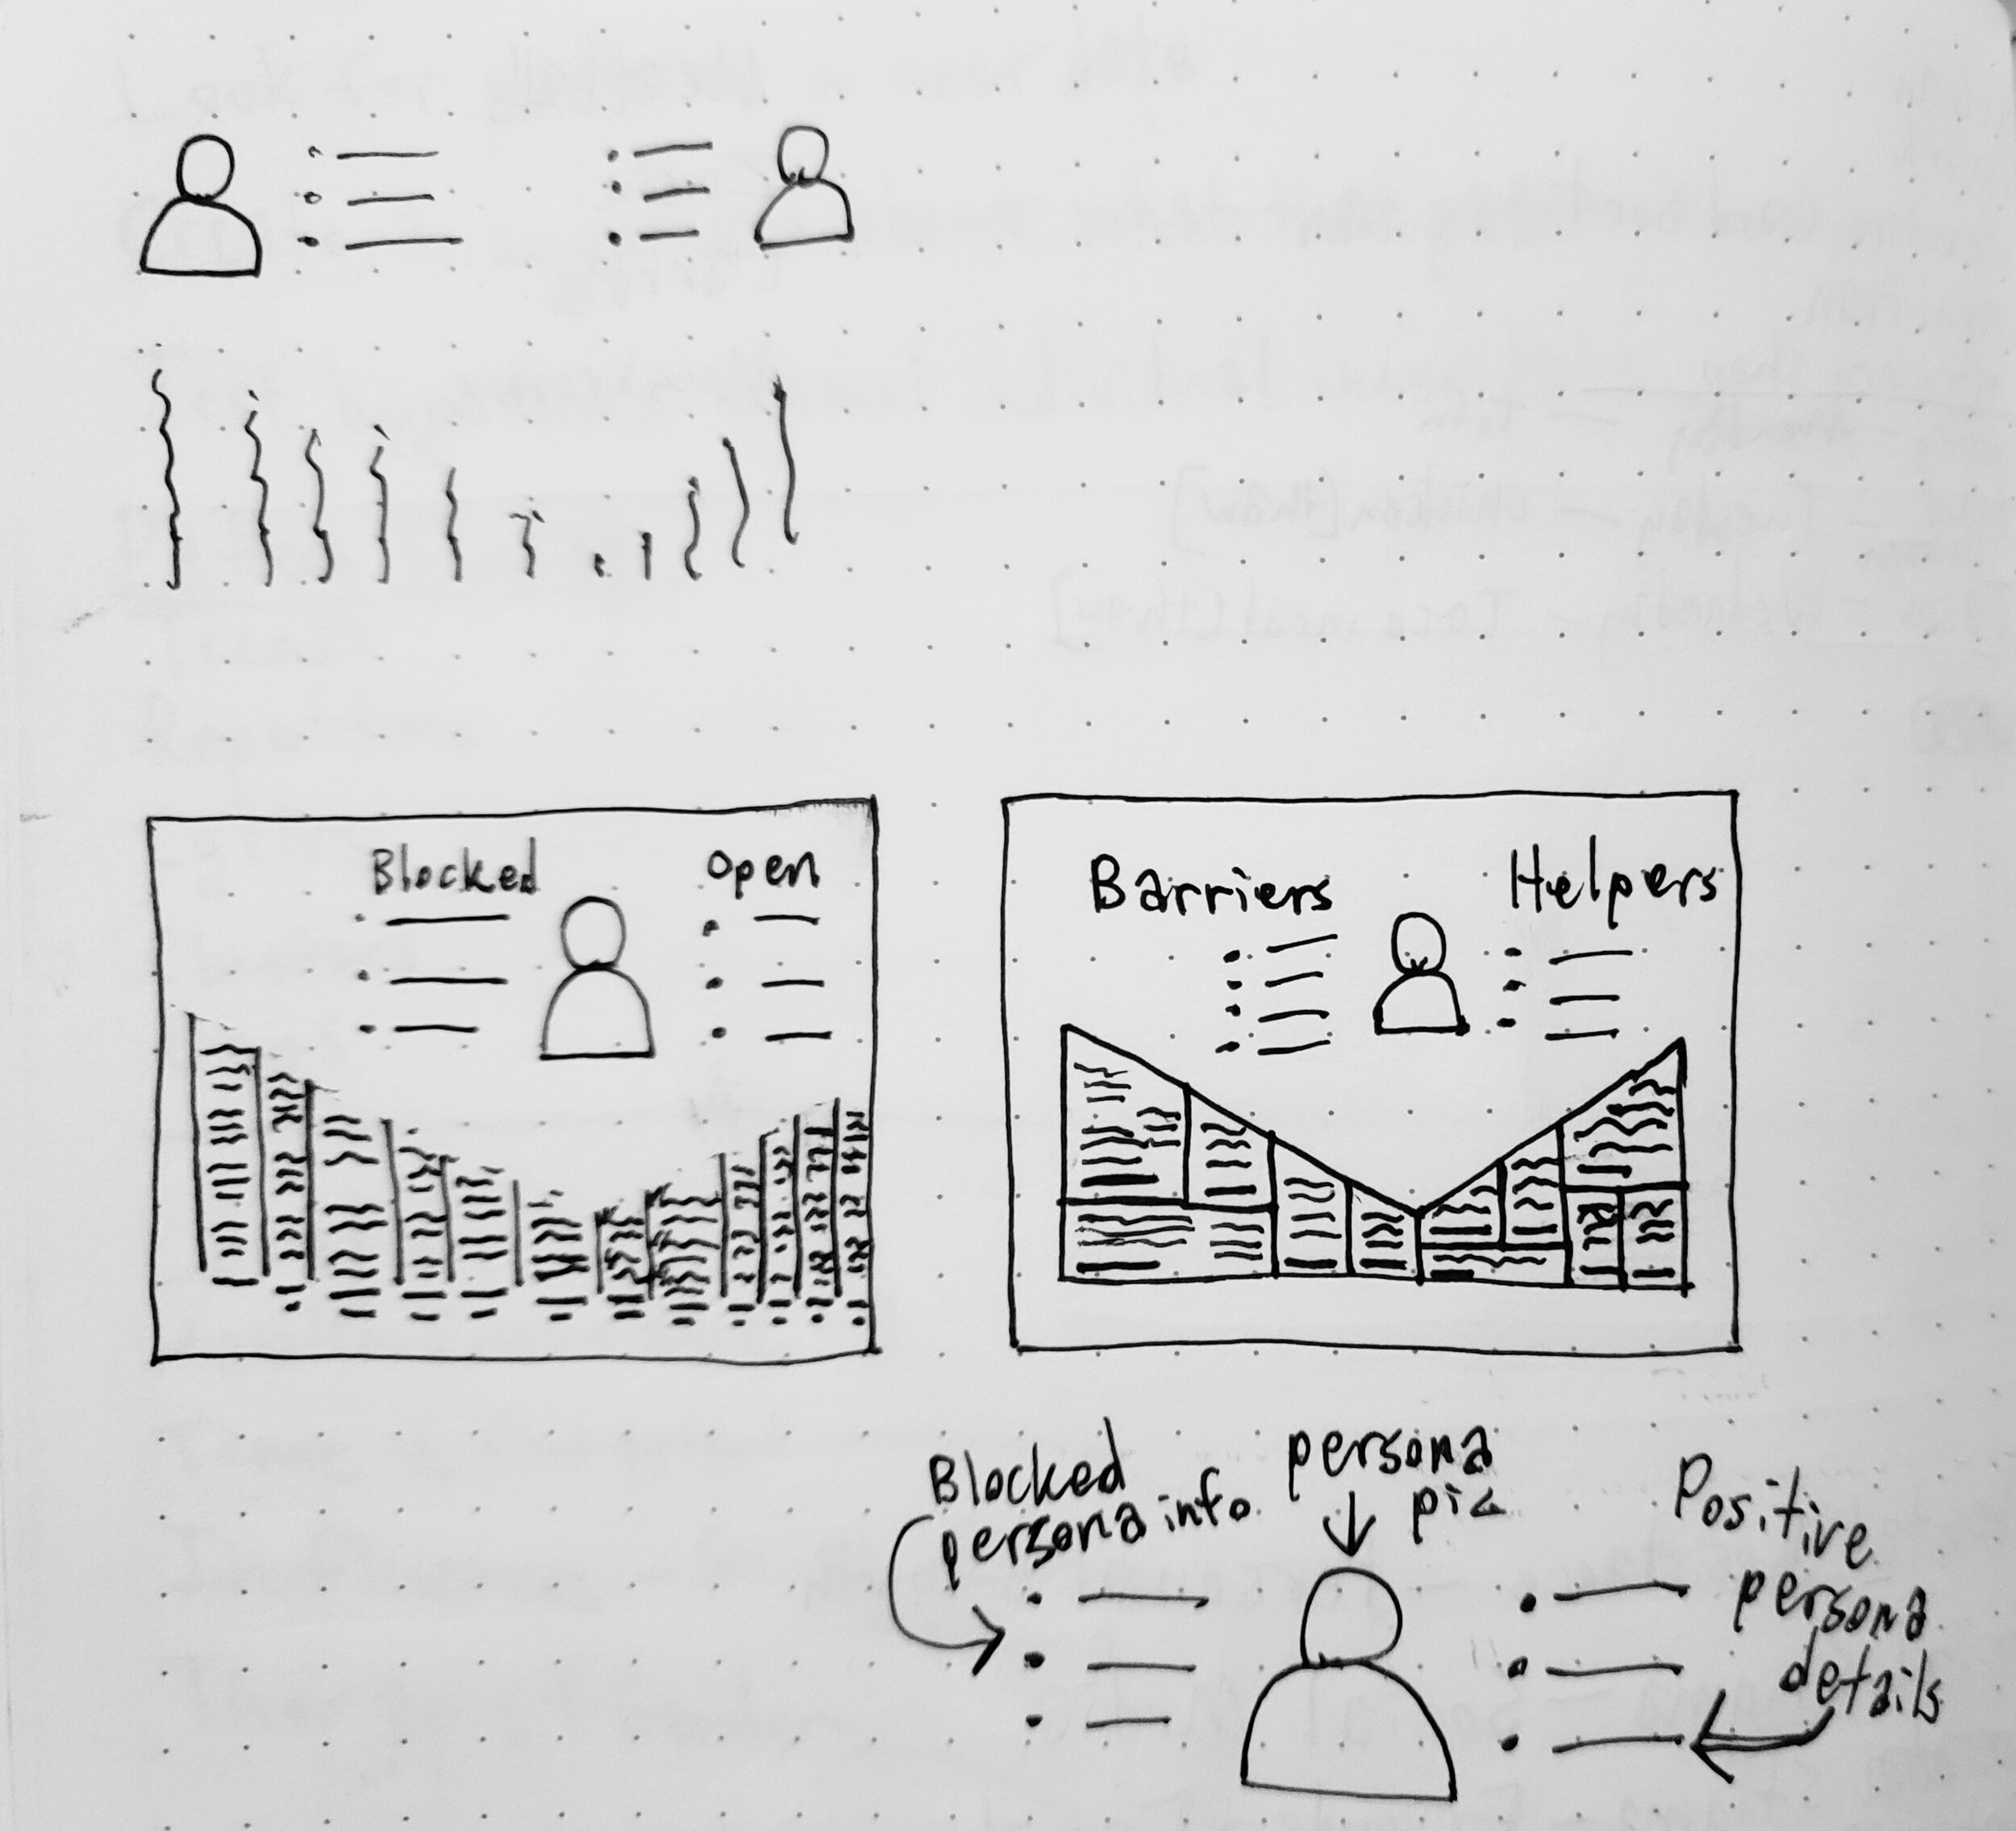 Blocked
Open
Barriers
Helpers
Blocked
persona info
persona
pic
Positive
persona
details